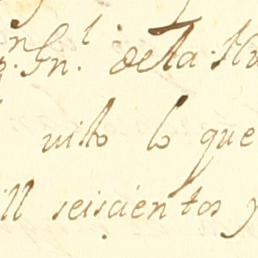 Gnl. dela Hu
visto lo que
ill seiscientos y